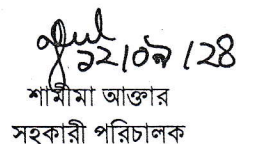 ১২/০৯/২৪
শামীমা আক্তার
সহকারী পরিচালক